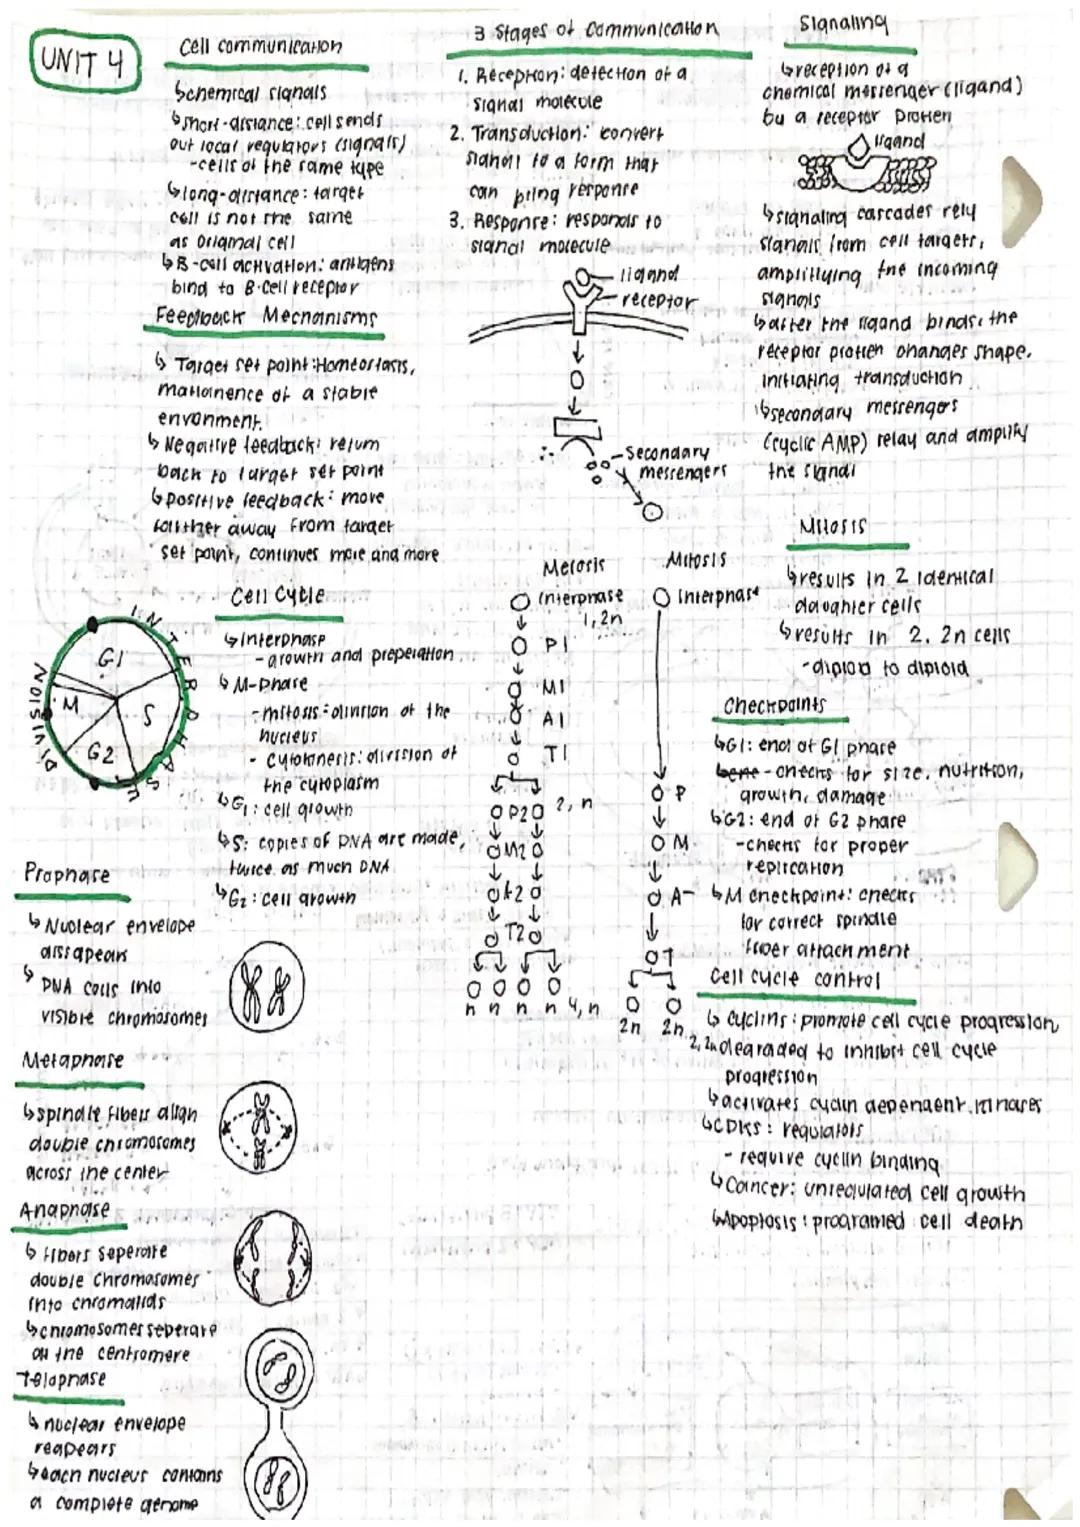 UNIT 4
Cell communication
↳chemical signals
↳short-distance: cell sends
out local regulators (signals)
-cells of the same type
↳long-distance: target
cell is not the same
as original cell
↳B-cell activation: antigens
bind to B-cell receptor
Feedback Mechanisms
↳ Target set point: Homeostasis,
maitainence of a stable
envonment.
↳ Negative feedback: return
back to target set point
↳positive feedback: move
farther away from target
set point, continues more and more
3 Stages of Communication
1. Reception: detection of a
signal molecule
2. Transduction: convert
signal to a form that
can bring response
3. Response: responds to
signal molecule
ligand
receptor
Secondary
messengers
Signaling
↳reception of a
chemical messenger (ligand)
by a receptor protien
ligand
↳signaling cascades rely
signals from cell targets,
amplifying the incoming
signals
↳after the ligand binds, the
receptor protien changes shape,
initiating transduction
↳secondary messengers
(cyclic AMP) relay and amplify
the signal
Cell Cycle
INTERPHASE
DIVISION
G1
S
G2
M
↳Interphase
-growth and preperation
↳M-phase
-mitosis: division of the
nucleus
- cytokinesis: division of
the cytoplasm
↳G1: cell growth
↳S: copies of DNA are made,
twice as much DNA
↳G2: cell growth
Meiosis
Interphase
1, 2n
P1
M1
A1
T1
P2
2, n
M2
A2
T2
n n n n 4, n
Mitosis
Interphase
P
M
A
T
2n 2n
2, 2n
Mitosis
↳results in 2 identical
daughter cells
↳results in 2, 2n cells
-diploid to diploid
Checkpoints
↳G1: end of G1 phase
-checks for size, nutrition,
growth, damage
↳G2: end of G2 phase
-checks for proper
replication
↳M checkpoint: checks
for correct spindle
fiber attachment
Cell cycle control
↳ cyclins: promote cell cycle progression
degraded to inhibit cell cycle
progression
↳activates cyclin dependent kinases
↳CDKs: regulators
- require cyclin binding
↳Cancer: unregulated cell growth
↳Apoptosis: programed cell death
Prophase
↳ Nuclear envelope
dissapears
↳ DNA coils into
visible chromosomes
Metaphase
↳spindle fibers allign
double chromosomes
across the center
Anaphase
↳ Fibers seperate
double chromosomes
into chromatids
↳chromosomes seperate
at the centromere
Telophase
↳ nuclear envelope
reapears
↳each nucleus contains
a complete genome